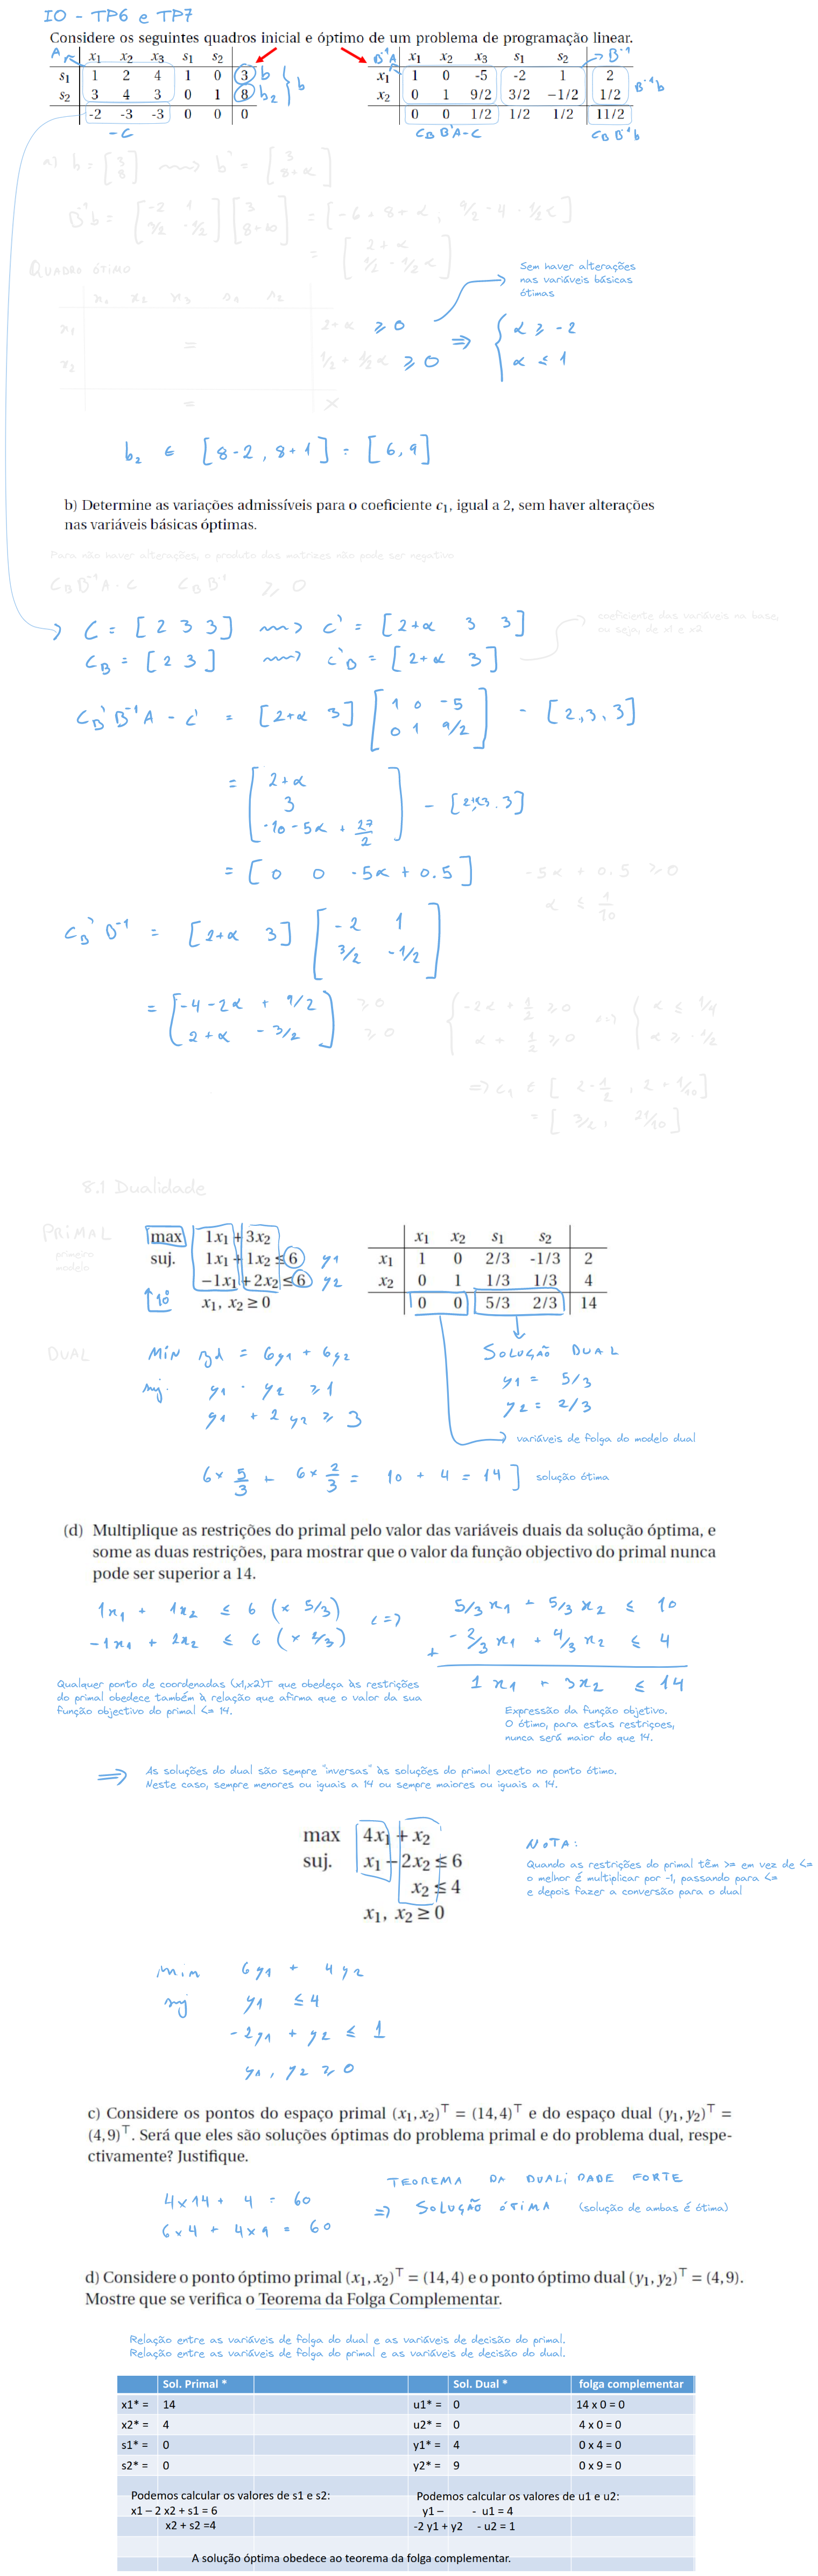 IO - TP6 e TP7
Considere os seguintes quadros inicial e óptimo de um problema de programação linear.
A x1 x2 x3 s1 s2
s1 1 2 4 1 0 3 b
s2 3 4 3 0 1 8 b2 } b
-2 -3 -3 0 0 0
-C
B⁻¹A x1 x2 x3 s1 s2 → B⁻¹
x1 1 0 -5 -2 1 2
x2 0 1 9/2 3/2 −1/2 1/2 B⁻¹b
0 0 1/2 1/2 1/2 11/2
CB B⁻¹A-C CB B⁻¹b
a) b = [3 8] ~~> b' = [3 8+α]
B⁻¹b = [-2 1 3/2 -1/2] [3 8+α] = [-6+8+α, 9/2 - 4 - 1/2α]
= [2+α 1/2 - 1/2α]
QUADRO ÓTIMO
Sem haver alterações
nas variáveis básicas
ótimas
x1 x2 x3 s1 s2
x1 2+α ≥ 0 => { α ≥ -2
x2 = 1/2 + 1/2α ≥ 0 α ≤ 1
= X
b2 ∈ [8-2, 8+1] = [6,9]
b) Determine as variações admissíveis para o coeficiente c1, igual a 2, sem haver alterações
nas variáveis básicas óptimas.
Para não haver alterações, o produto das matrizes não pode ser negativo
CB B⁻¹A - C CB B⁻¹ ≥ 0
C = [2 3 3] ~~> C' = [2+α 3 3]
CB = [2 3] ~~> C'B = [2+α 3]
coeficiente das variáveis na base,
ou seja, de x1 e x2
CB' B⁻¹A - C' = [2+α 3] [1 0 -5 0 1 9/2] - [2,3,3]
= [2+α 3 -10-5α + 27/2] - [2+α 3. 3]
= [0 0 -5α + 0.5]
-5α + 0.5 ≥ 0
α ≤ 1/10
CB' B⁻¹ = [2+α 3] [-2 1 3/2 -1/2]
= [-4-2α + 9/2 2+α - 3/2] ≥ 0 ≥ 0
{ -2α + 1/2 ≥ 0 α + 1/2 ≥ 0 <=> { α ≤ 1/4 α ≥ -1/2
=> c1 ∈ [2-1/2, 2+1/10]
= [3/2, 21/10]
8.1 Dualidade
PRIMAL
primeiro
modelo
max 1x1 + 3x2
suj. 1x1 + 1x2 ≤ 6 y1
−1x1 + 2x2 ≤ 6 y2
x1, x2 ≥ 0
x1 x2 s1 s2
x1 1 0 2/3 -1/3 2
x2 0 1 1/3 1/3 4
0 0 5/3 2/3 14
DUAL
MIN zd = 6y1 + 6y2
suj. y1 - y2 ≥ 1
y1 + 2y2 ≥ 3
SOLUÇÃO DUAL
y1 = 5/3
y2 = 2/3
variáveis de folga do modelo dual
6 × 5/3 + 6 × 2/3 = 10 + 4 = 14 ] solução ótima
(d) Multiplique as restrições do primal pelo valor das variáveis duais da solução óptima, e
some as duas restrições, para mostrar que o valor da função objectivo do primal nunca
pode ser superior a 14.
1x1 + 1x2 ≤ 6 (× 5/3)
-1x1 + 2x2 ≤ 6 (× 2/3)
<=>
5/3 x1 + 5/3 x2 ≤ 10
+ -2/3 x1 + 4/3 x2 ≤ 4
1 x1 + 3x2 ≤ 14
Qualquer ponto de coordenadas (x1,x2)T que obedeça às restrições
do primal obedece também à relação que afirma que o valor da sua
função objectivo do primal <= 14.
Expressão da função objetivo.
O ótimo, para estas restriçoes,
nunca será maior do que 14.
=> As soluções do dual são sempre "inversas" às soluções do primal exceto no ponto ótimo.
Neste caso, sempre menores ou iguais a 14 ou sempre maiores ou iguais a 14.
max 4x1 + x2
suj. x1 − 2x2 ≤ 6
x2 ≤ 4
x1, x2 ≥ 0
NOTA:
Quando as restrições do primal têm >= em vez de <=
o melhor é multiplicar por -1, passando para <=
e depois fazer a conversão para o dual
min 6y1 + 4y2
suj y1 ≤ 4
-2y1 + y2 ≤ 1
y1, y2 ≥ 0
c) Considere os pontos do espaço primal (x1, x2)⊤ = (14,4)⊤ e do espaço dual (y1, y2)⊤ =
(4,9)⊤. Será que eles são soluções óptimas do problema primal e do problema dual, respe-
ctivamente? Justifique.
4×14 + 4 = 60
6×4 + 4×9 = 60
TEOREMA DA DUALIDADE FORTE
=> SOLUÇÃO ÓTIMA (solução de ambas é ótima)
d) Considere o ponto óptimo primal (x1, x2)⊤ = (14,4) e o ponto óptimo dual (y1, y2)⊤ = (4,9).
Mostre que se verifica o Teorema da Folga Complementar.
Relação entre as variáveis de folga do dual e as variáveis de decisão do primal.
Relação entre as variáveis de folga do primal e as variáveis de decisão do dual.
Sol. Primal * Sol. Dual * folga complementar
x1* = 14 u1* = 0 14 x 0 = 0
x2* = 4 u2* = 0 4 x 0 = 0
s1* = 0 y1* = 4 0 x 4 = 0
s2* = 0 y2* = 9 0 x 9 = 0
Podemos calcular os valores de s1 e s2:
x1 – 2 x2 + s1 = 6
x2 + s2 =4
Podemos calcular os valores de u1 e u2:
y1 – - u1 = 4
-2 y1 + y2 - u2 = 1
A solução óptima obedece ao teorema da folga complementar.